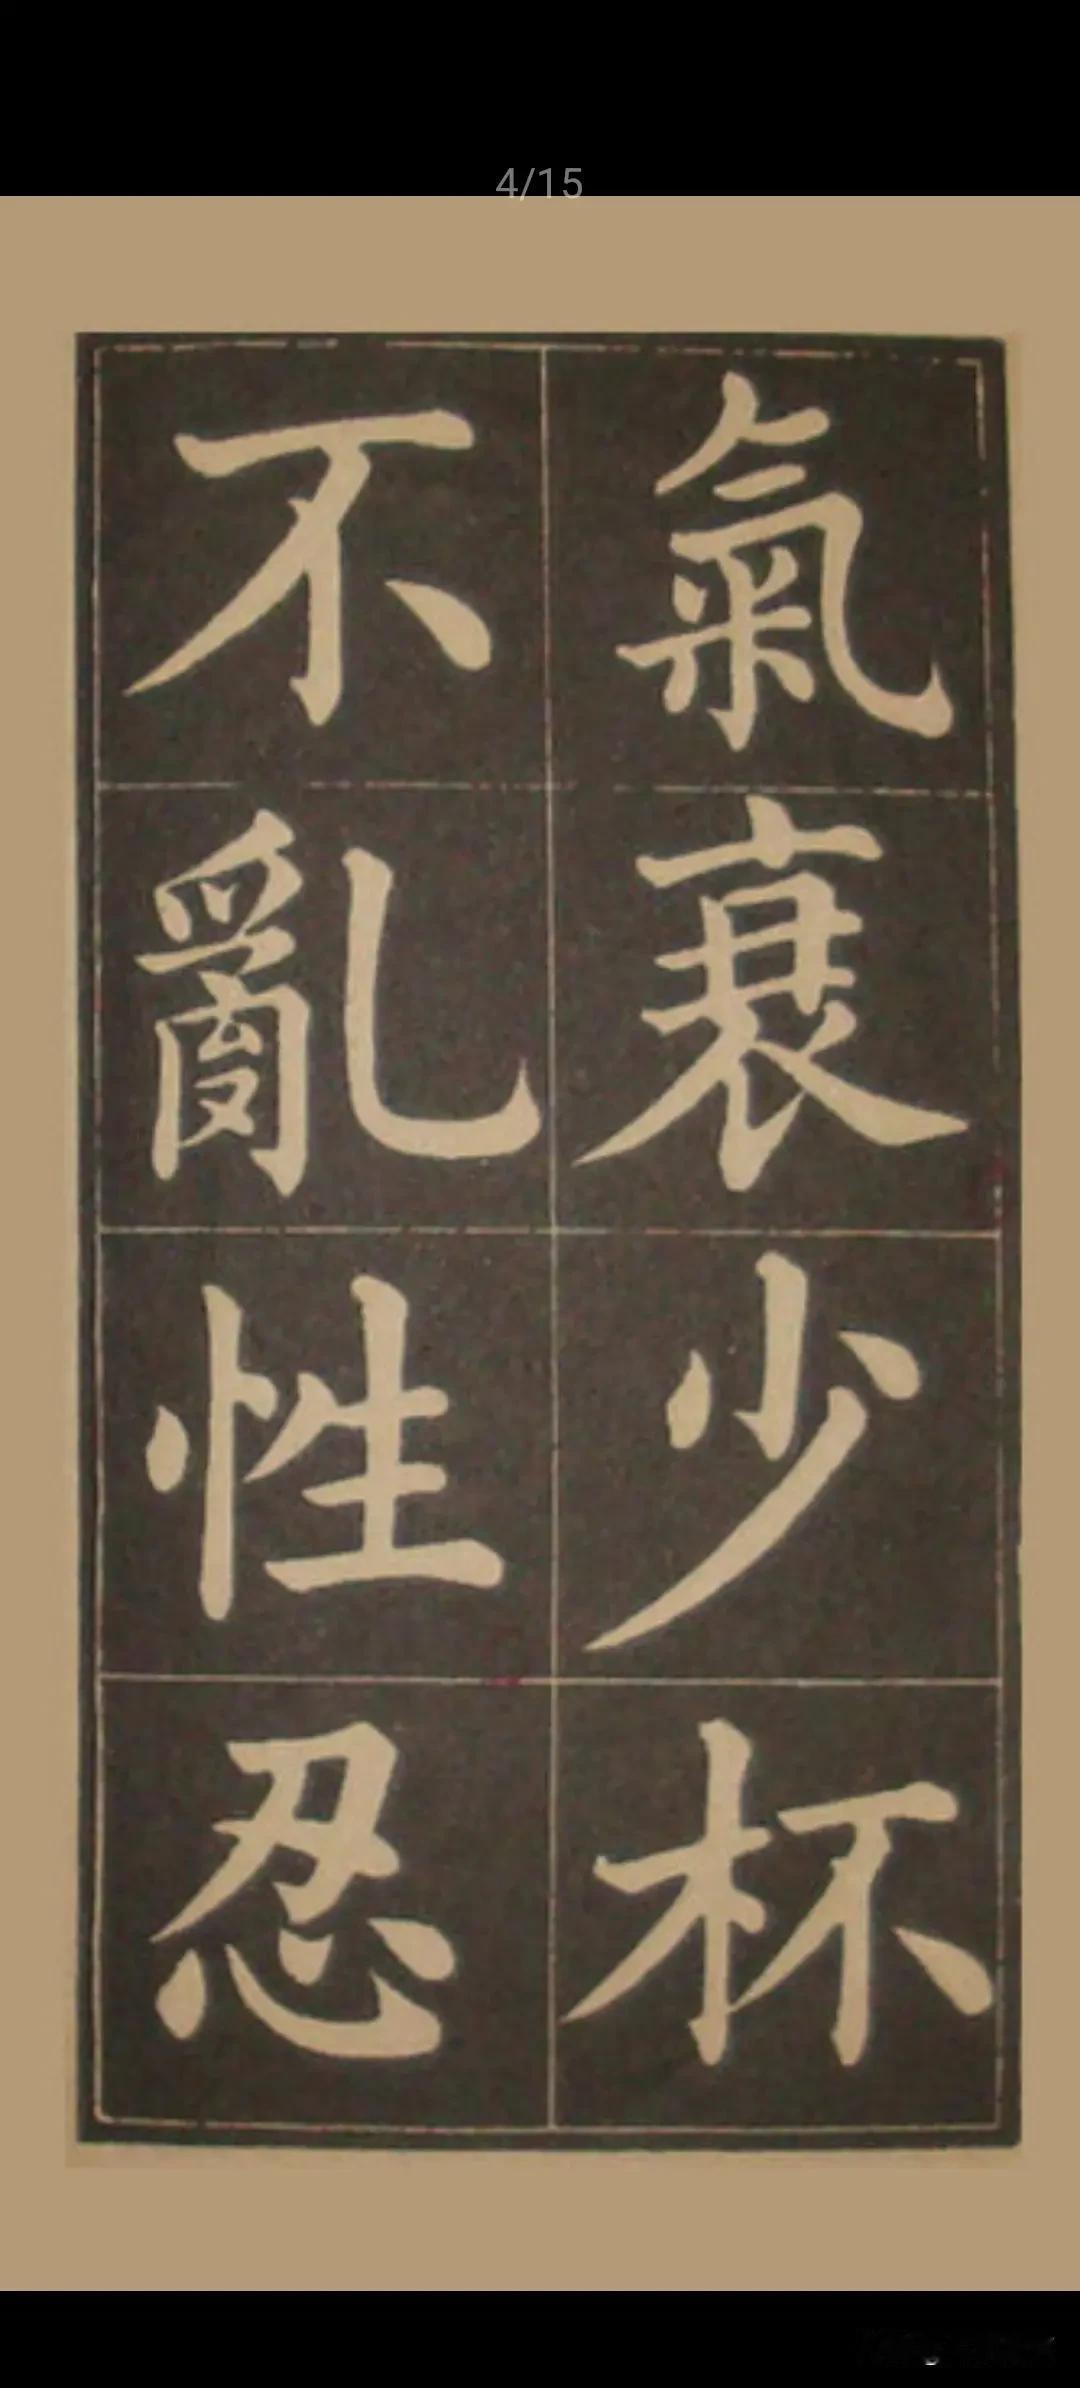 4/15
氣衰少杯
不亂性忍